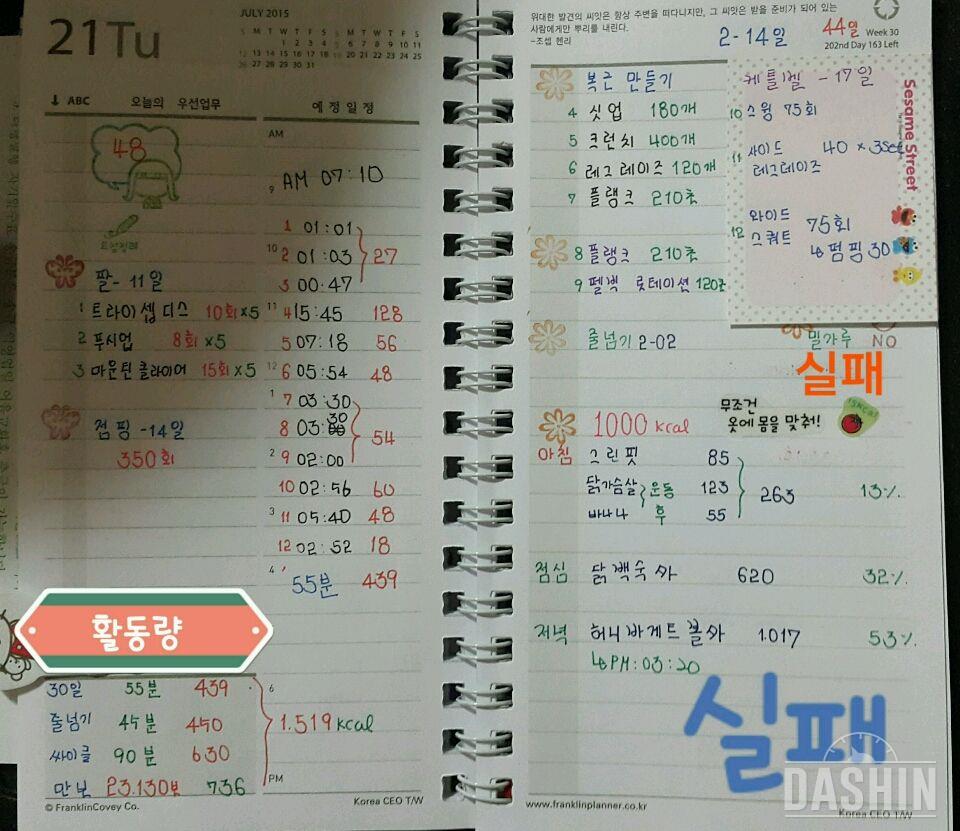 21 Tu
JULY 2015
S M T W T F S
1 2 3 4
5 6 7 8 9 10 11
12 13 14 15 16 17 18
19 20 21 22 23 24 25
26 27 28 29 30 31
↓ ABC 오늘의 우선업무
48
팔- 11일
1 트라이셉 디스 10회×5
2 푸시업 8회×5
3 마운틴 클라이머 15회×5
점핑 -14일
350회
활동량
30일 55분 439
줄넘기 45분 450
싸이클 90분 630
만보 23.130보 736
1.519 kcal
© FranklinCovey Co.
예정일정
AM
9 AM 07:10
1 01:01
10 2 01:03 27
3 00:47
11 4 15:45 128
5 07:18 56
12 6 05:54 48
1 7 03:30
8 03:30 54
2 9 02:00
10 02:56 60
3 11 05:40 48
12 02:52 18
4 55분 439
6
PM
Korea CEO T/W
위대한 발견의 씨앗은 항상 주변을 떠다니지만, 그 씨앗은 받을 준비가 되어 있는
사람에게만 뿌리를 내린다.
-조셉 헨리
2-14일
44일
Week 30
202nd Day 163 Left
복근 만들기
4 싯업 180개
5 크런치 400개
6 레그레이즈 120개
7 플랭크 210초
8 플랭크 210초
9 펠빅 롯테이션 120
케틀벨 -17일
10 스윙 75회
11 사이드 40 × 3set
레그레이즈
12 와이드 75회
스쿼트 ↳펌핑 30
Sesame Street
줄넘기 2-02
밀가루 NO
실패
1000 kcal
무조건
옷에 몸을 맞춰!
아침 그린핏 85
닭가슴살 운동 123 263 13%
바나나 후 55
점심 닭백숙 外 620 32%
저녁 허니바게트볼 外 1.017 53%
↳PM:03:20
실패
DASHIN
www.franklinplanner.co.kr
Korea CEO T/W